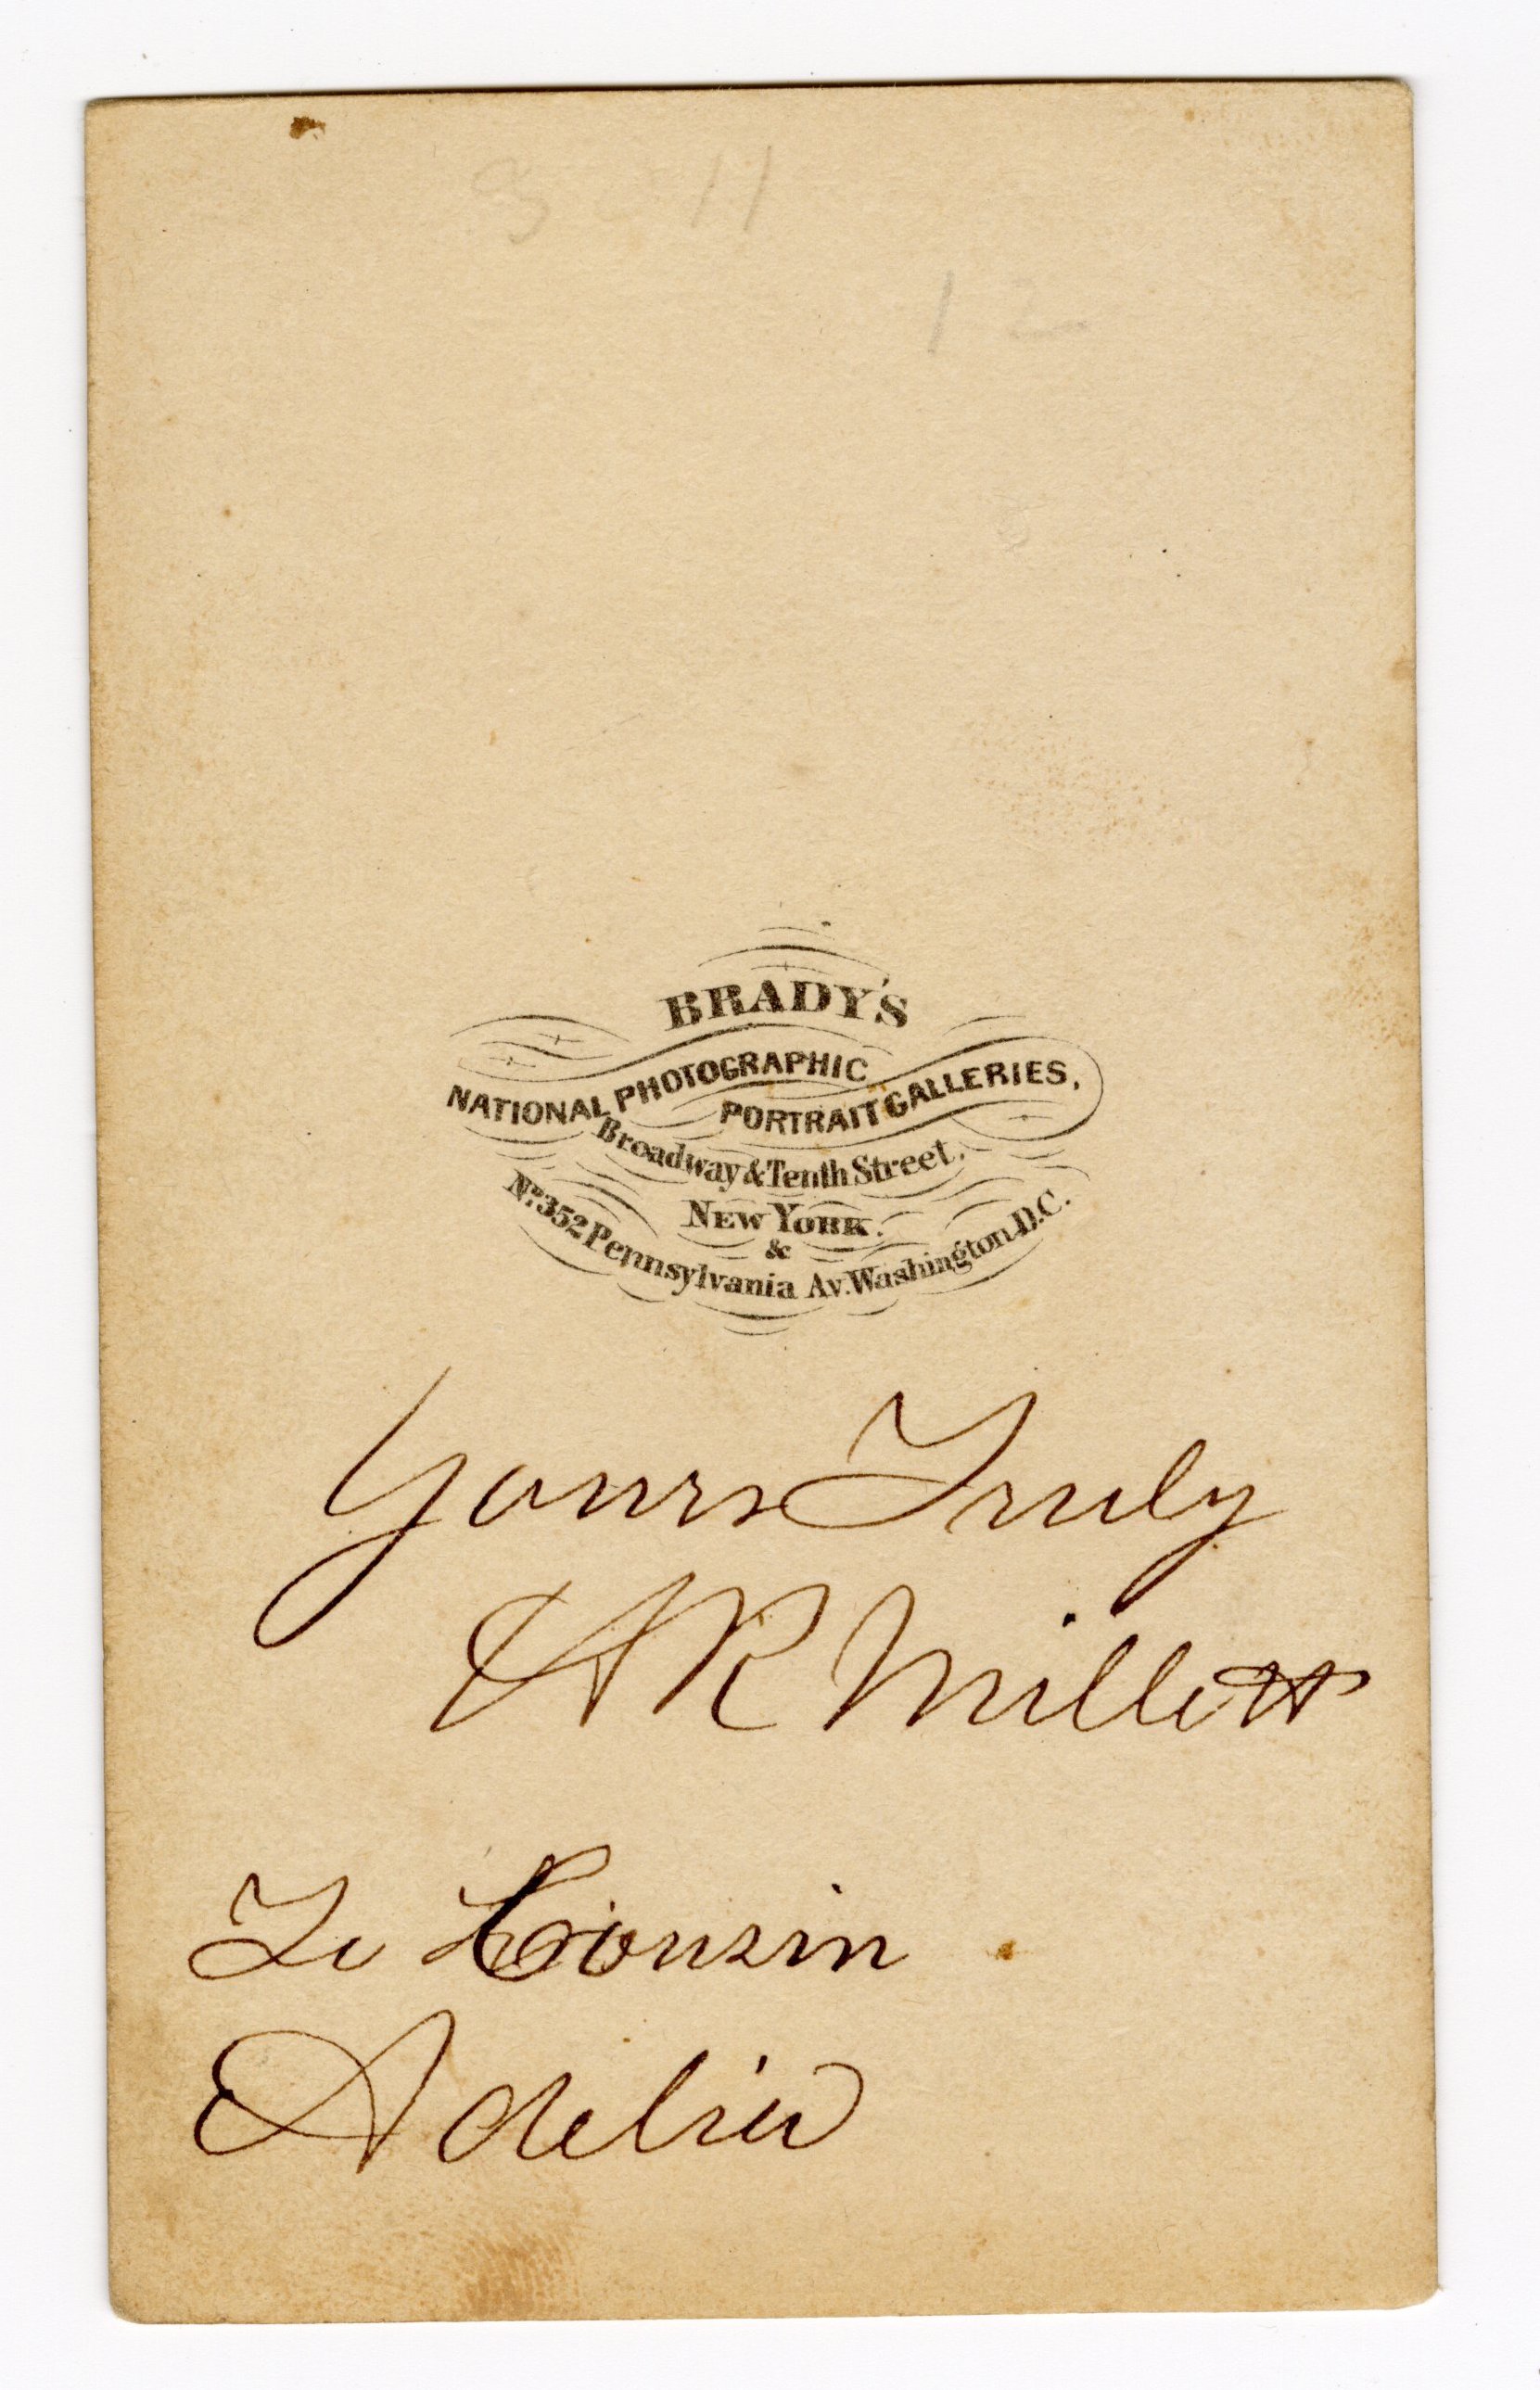 11
12
BRADY'S
NATIONAL PHOTOGRAPHIC
PORTRAIT GALLERIES,
Broadway & Tenth Street,
NEW YORK.
&
No. 352 Pennsylvania Av. Washington D.C.
Yours Truly
H R Millett
To Cousin
Adelia